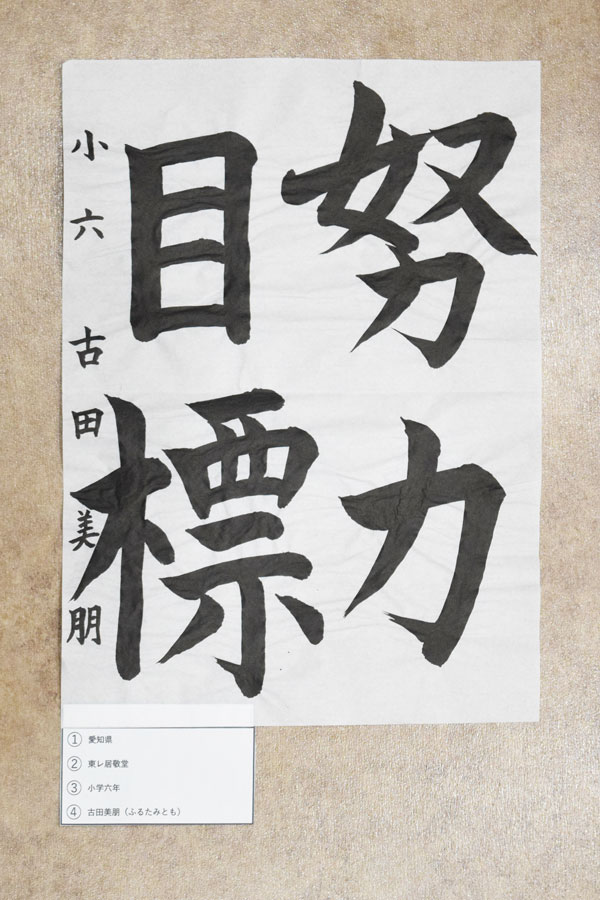 努力
目標
小六 古田美朋
① 愛知県
② 東レ居敬堂
③ 小学六年
④ 古田美朋（ふるたみとも）